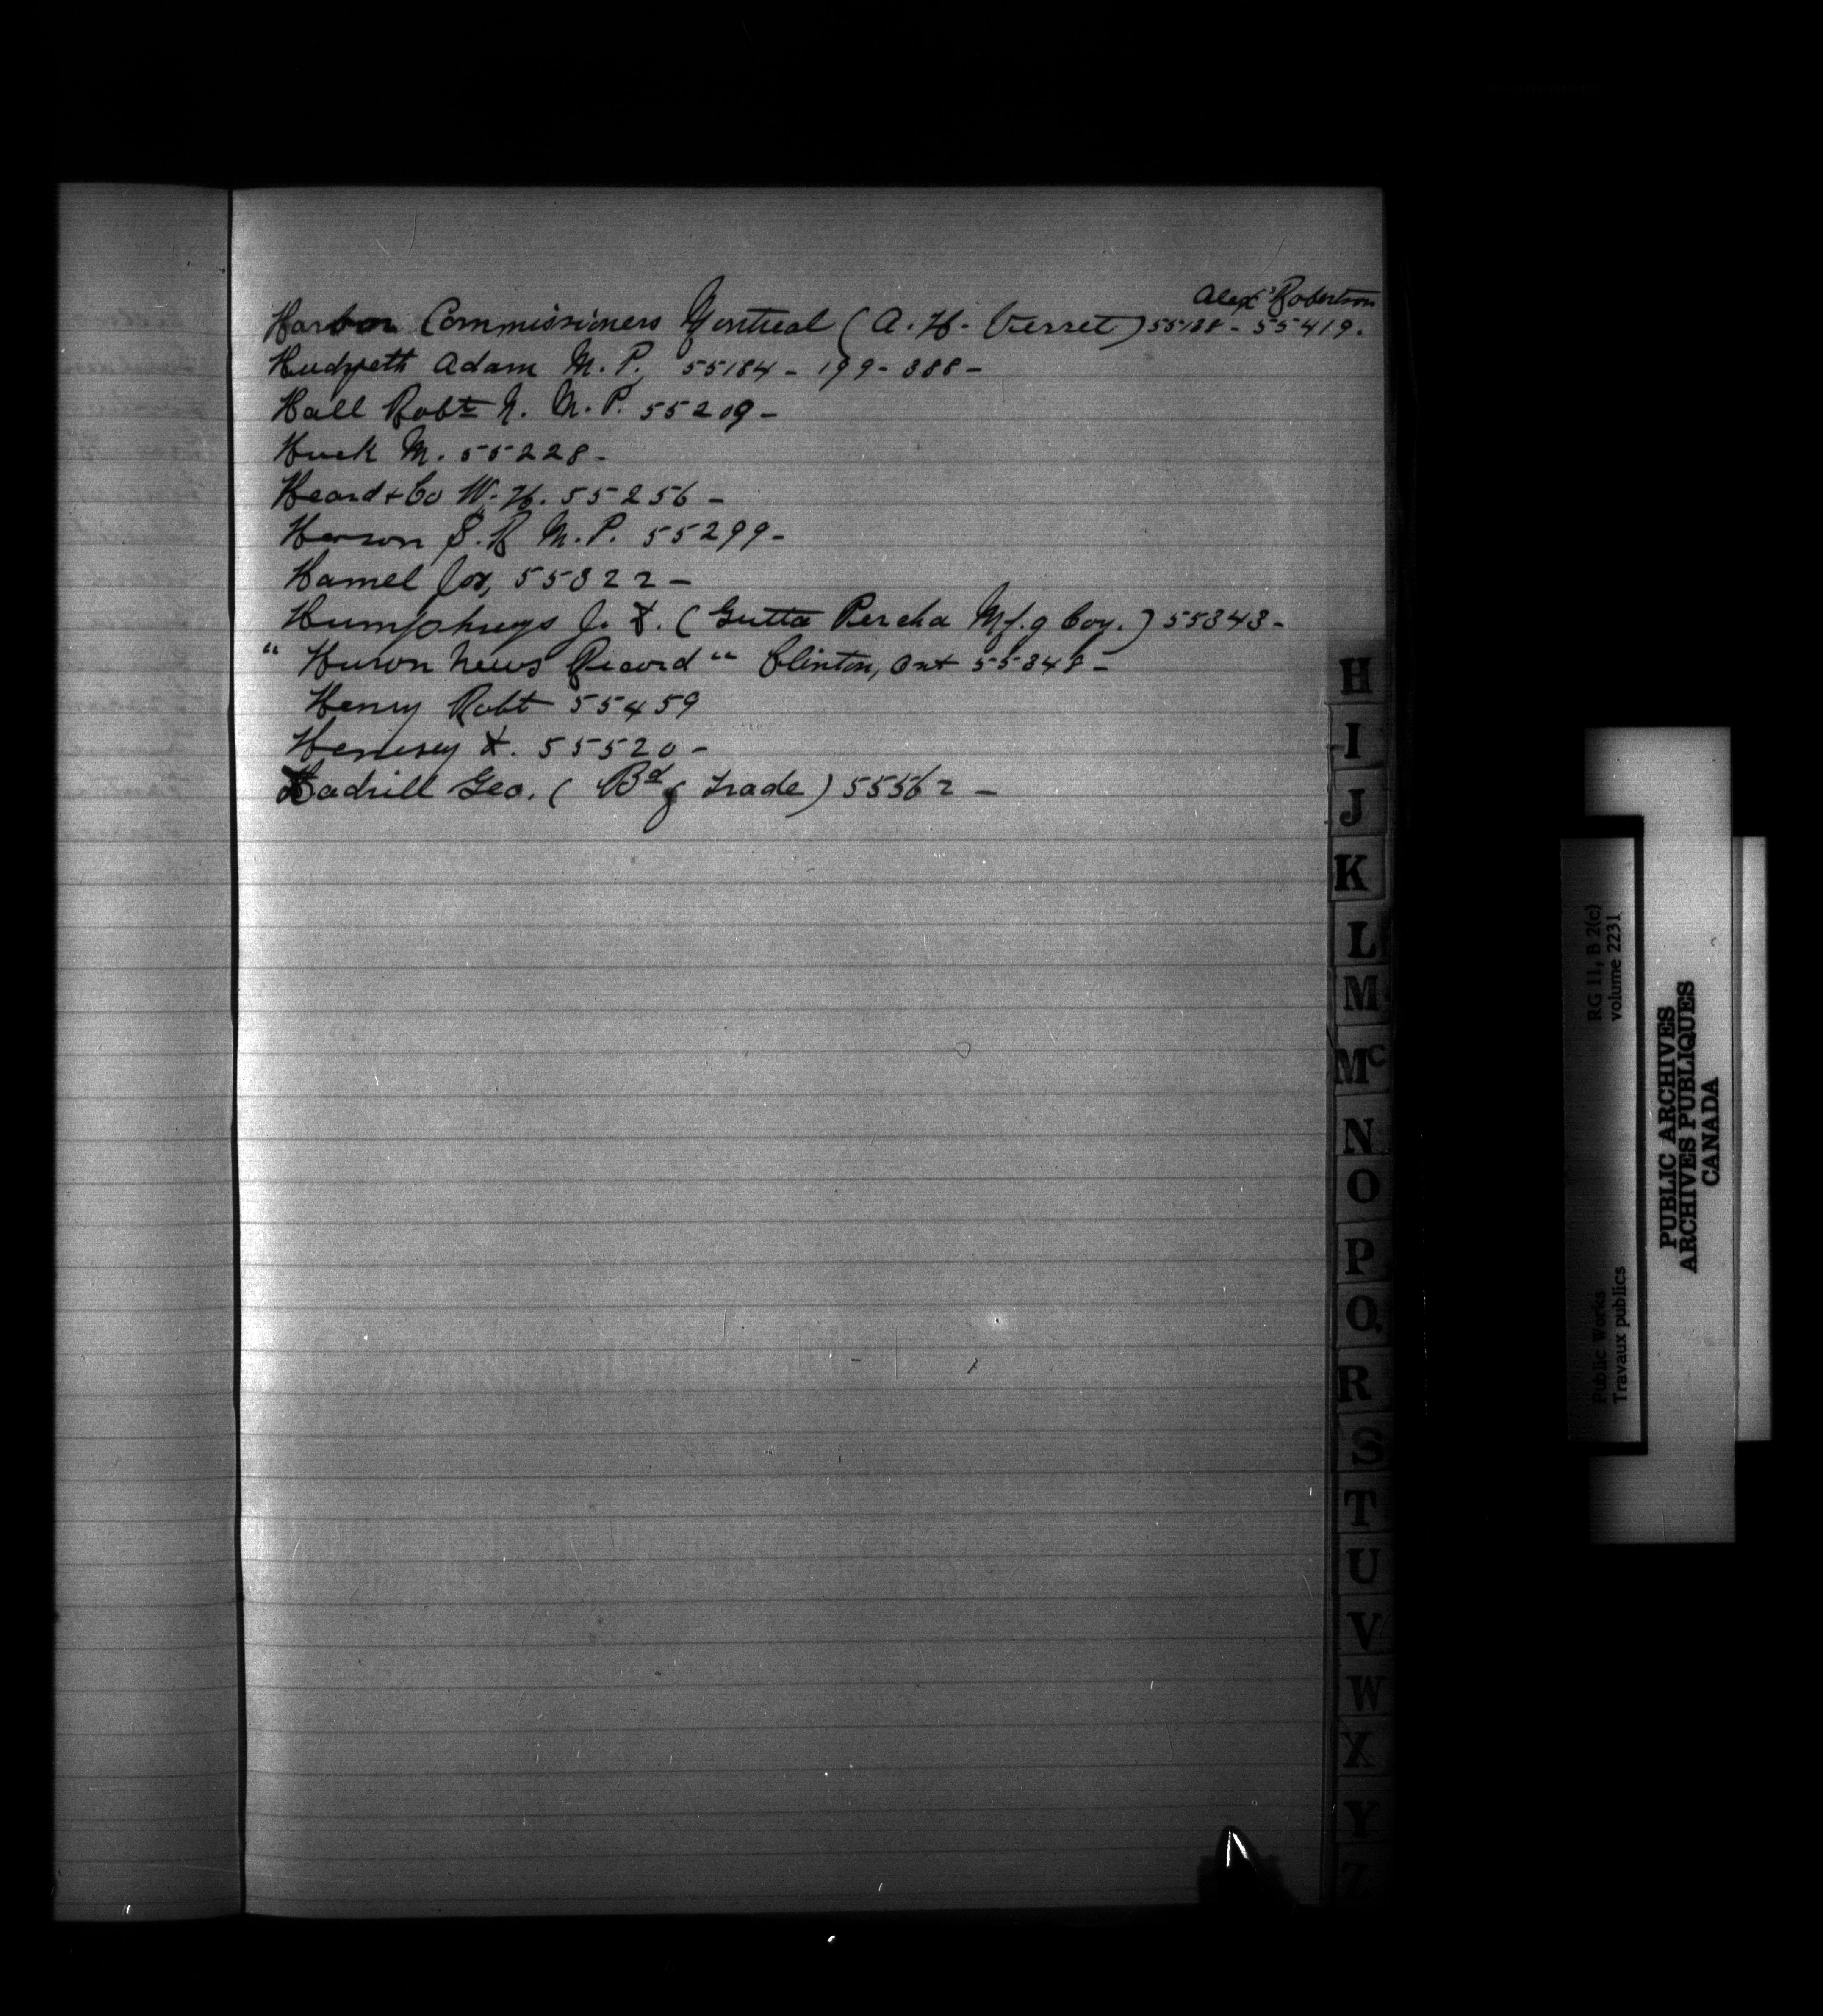 Alexr Robertson
Harbor Commissioners Montreal (A. H. Verret) 55188 - 55419.
Hudspeth Adam M. P. 55184 - 199 - 388 -
Hall Robt N. M. P. 55209 -
Huck M. 55228 -
Heard & Co W. H. 55256 -
Hesson S. R M. P. 55299 -
Hamel Jos, 55322 -
Humphreys J. F. (Gutta Percha Mf.g Coy.) 55343 -
" Huron News Record " Clinton, Ont 55348 -
Henry Robt 55459
Henesey F. 55520 -
Hadrill Geo. (Bd of Trade) 55562 -
H
I
J
K
L
M
Mc
N
O
P
Q
R
S
T
U
V
W
X
Y
Z
RG 11, B 2(c)
volume 2231
Public Works
Travaux publics
PUBLIC ARCHIVES
ARCHIVES PUBLIQUES
CANADA